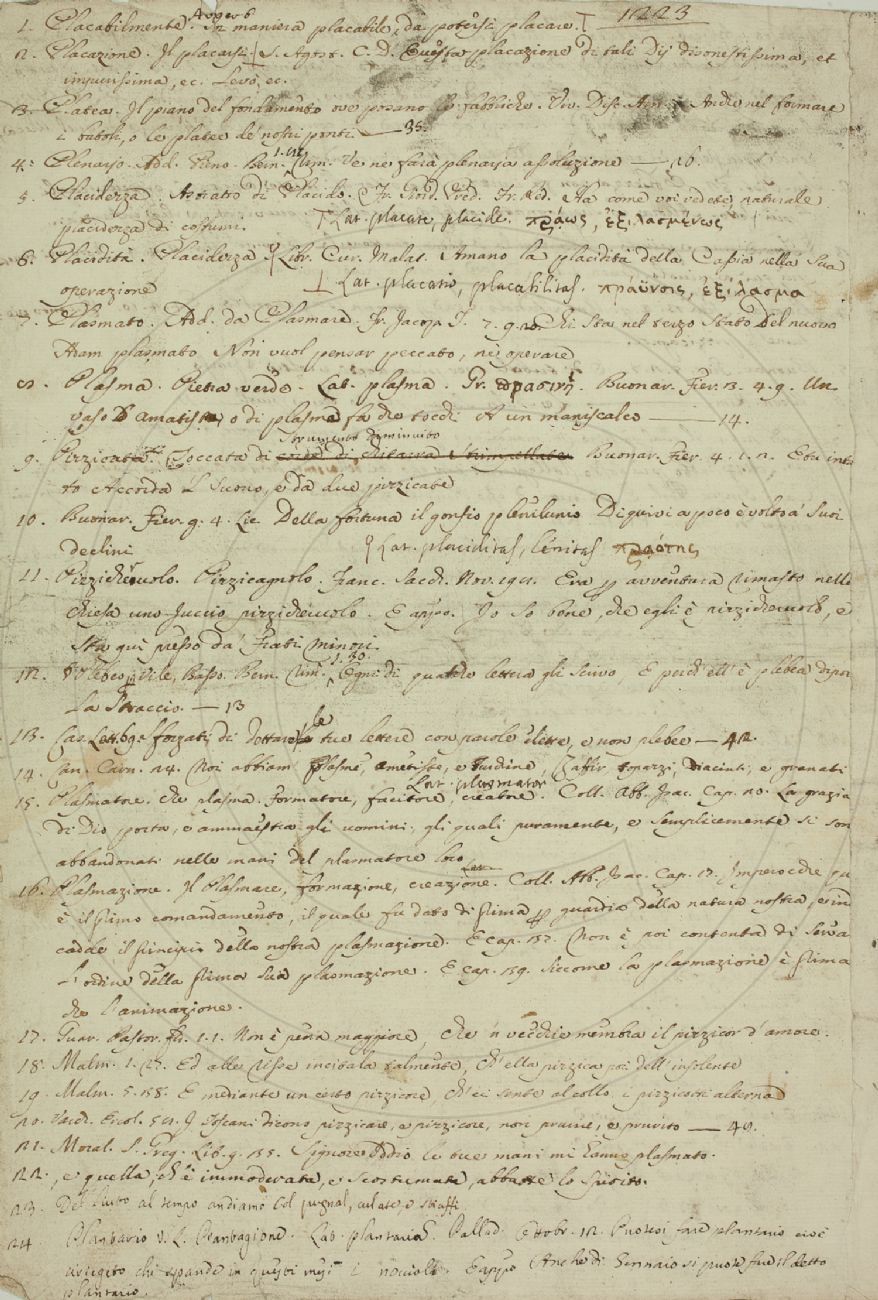 11223
Avverb
1. Placabilmente. In maniera placabile, da potersi placare. T
2. Placazione. Il placarsi. S. Agost. C. D. Questa placazione di tali Dij disonestissima, et
impurissima, ec. Levò, ec.
3. Platea. Il piano del fondamento ove posano le fabbriche. Viv. Disc. Arn. Anche nel formare
i tuboli, o le platee de' nostri ponti. — 35.
4. Plenario. Add. Pieno. Bern. Rim. Te ne farà plenaria assoluzione — 26.
5. Placidezza. Astratto di Placido. Fr. Giord. Pred. Ha come voi vedete, naturale
placidezza di costumi. T Lat. placate, placide. πράως, ἐξιλασμένως
6. Placidità. Placidezza. Libr. Cur. Malat. Amano la placidità della Cassia nella sua
operazione ⊥ Lat. placatio, placabilitas. πράϋνσις, ἐξίλασμα
7. Plasmato. Add. da Plasmare. Fr. Jacop. T. 7. 9. Chi sta nel terzo stato Del nuovo
Adam plasmato Non vuol pensar peccato, nè operare
8. Plasma. Pietra verde. Lat. plasma. Gr. Buonar. Fier. 3. 4. 9. Un
vaso D'amatista, o di plasma fa che tocchi A un maniscalco — 14.
9. Pizzicata. Toccata di strumento Buonar. Fier. 4. 1. Edu into
to Accorda L suono, e da due pizzicate
10. Buonar. Fier. g. 4. Lic. Della fortuna il gonfio plenilunio Di quivi a poco è volto a' suoi
declini Lat. placiditas, lenitas πραότης
11. Pizzicheruolo. Pizzicagnolo. Franc. Sacch. Nov. Era per avventura rimasto nella
chiesa uno Juccio pizzicheruolo. E appr. Io so bene, che egli è pizzicheruolo, e
sta quì presso da' Frati Minori.
12. Plebeo. Vile, Basso. Bern. Rim. 1. 30. Ogni dì quattro lettere gli scrivo, E perch'ell'è plebea dipoi
La straccio — 13
13. Cas. Lett. Sforzati di dettare le tue lettere con parole elette, e non plebee — 42.
14. Can. Carn. 24. Noi abbiam plasme, ametiste, e turchine, Zaffir, topazi, diacinti, e granati
15. Plasmatore. Che plasma. Formatore, facitore, creatore. Lat. plasmator Coll. Abb. Isac. Cap. 20. La grazia
di Dio porta, e ammaestra gli uomini, gli quali puramente, e semplicemente si son
abbandonati nelle mani del plasmatore loro
16. Plasmazione. Il Plasmare, formazione, creazione. Coll. Abb. Isac. Cap. 13. Imperocchè qu
è il primo comandamento, il quale fu dato di prima per guardia della natura nostra, e in
cadde il principio della nostra plasmazione. E cap. 157. Non è poi contenta di serva
l'ordine della prima sua plasmazione. E cap. 159. Siccome la plasmazione è prima
che l'animazione.
17. Guar. Pastor. Fid. 1. 1. Non è pena maggiore, Che 'n vecchie membra il pizzicor d'amore.
18. Malm. 1. Ed alle risse incitala talmente, Ch'ella pizzica poi dell'insolente
19. Malm. 5. 58. E mediante un certo pizzicore, Ch'ei sente al collo, i pizzicotti alterna
20. Varch. Ercol. I Toscani dicono pizzicare, e pizzicore, non prurire, e prurito — 40.
21. Moral. S. Greg. Lib. 9. 35. Signore Iddio le tue mani mi hanno plasmato.
22. , e quella, ch'è immoderata, e scostumata, abbatte lo spirito.
23. Del resto al tempo andiamo Col pugnal, culate, e straffi
24 Plantario v. L. Piantagione. Lat. plantaria. Pallad. Ottobr. 12. Puotesi fare plantario cioè
i noccioli. E appr. Anche di Gennaio si puote fare il detto
plantario.